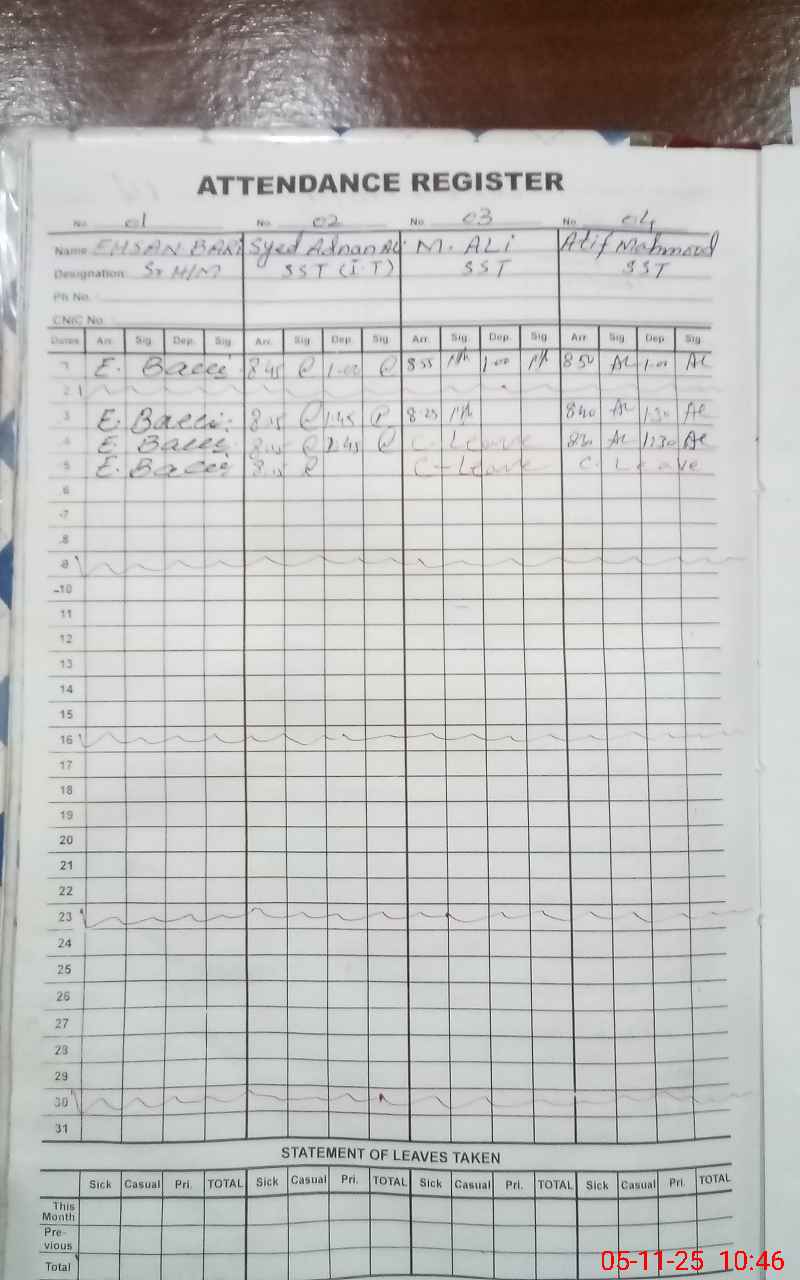 ATTENDANCE REGISTER
No. 01 No. 02 No. 03 No. 04
Name EHSAN BARI Syed Adnan Ali M. ALi Atif Mahmood
Designation Sr H/M SST (I.T) SST SST
Ph No.
CNIC No.
Dates Arr. Sig. Dep. Sig. Arr. Sig Dep. Sig Arr. Sig. Dep. Sig Arr. Sig. Dep. Sig
1 E. 8.45 1.00 8.55 1.00 8.50 1.00
2
3 E. 8.15 1.45 8.25 8.40 1.30
4 E. 8.15 2.45 C-Leave 1.30
5 E. 8.15 C-Leave C. Leave
6
7
8
9
10
11
12
13
14
15
16
17
18
19
20
21
22
23
24
25
26
27
28
29
30
31
STATEMENT OF LEAVES TAKEN
Sick Casual Pri. TOTAL Sick Casual Pri. TOTAL Sick Casual Pri. TOTAL Sick Casual Pri. TOTAL
This
Month
Pre-
vious
Total
05-11-25 10:46